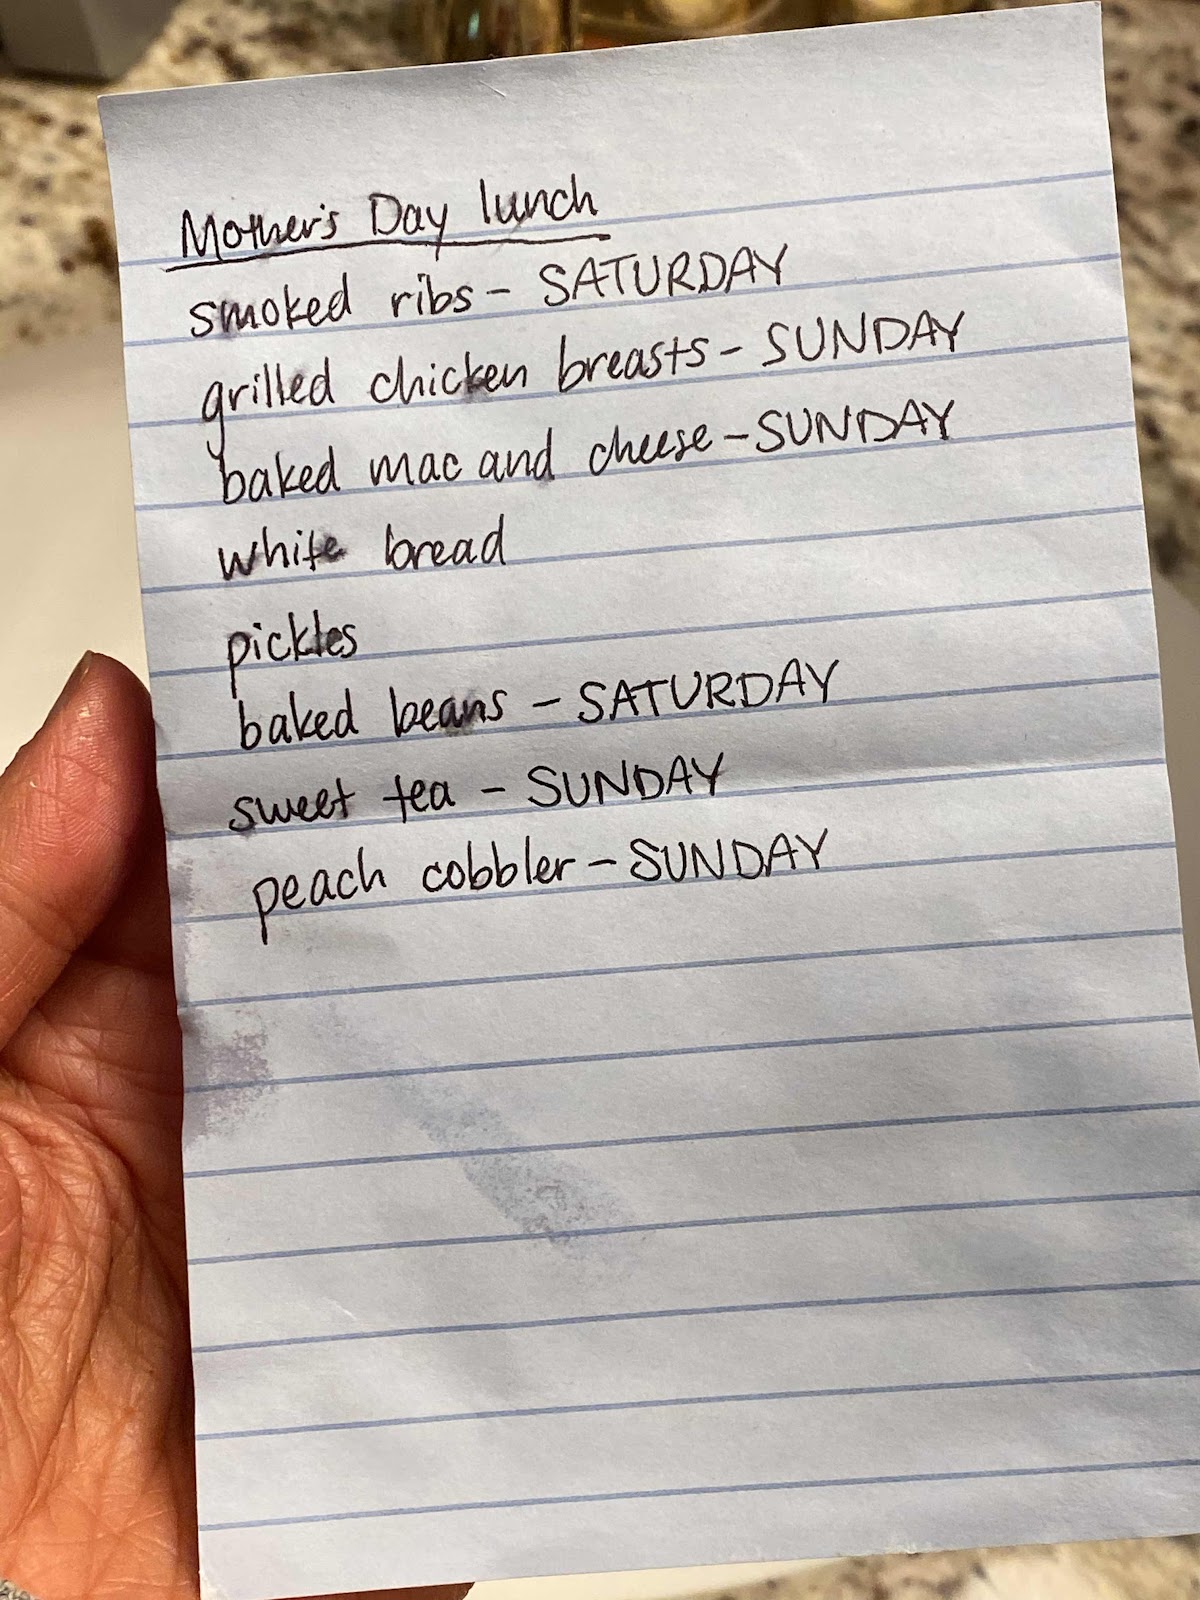 Mother's Day lunch
smoked ribs - SATURDAY
grilled chicken breasts - SUNDAY
baked mac and cheese - SUNDAY
white bread
pickles
baked beans - SATURDAY
sweet tea - SUNDAY
peach cobbler - SUNDAY